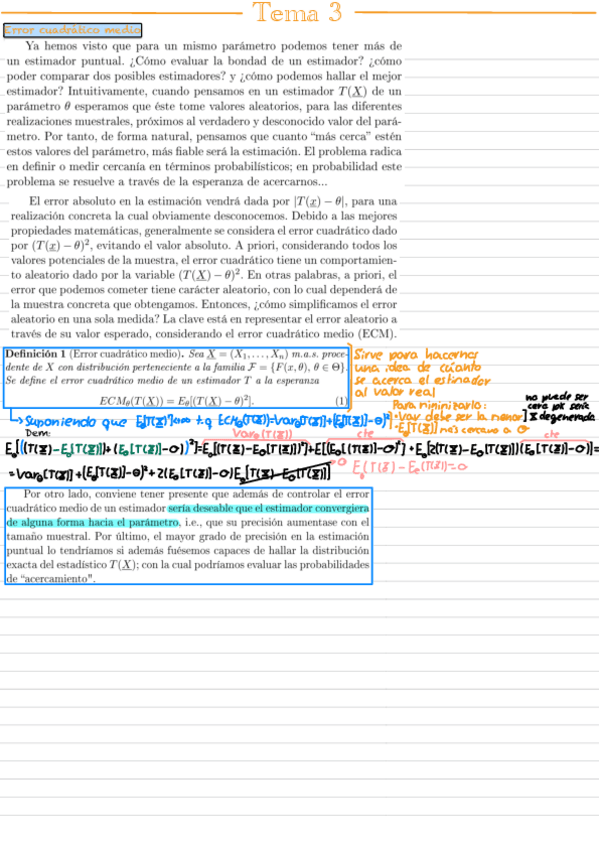 Tema 3
Error cuadrático medio
Ya hemos visto que para un mismo parámetro podemos tener más de
un estimador puntual. ¿Cómo evaluar la bondad de un estimador? ¿cómo
poder comparar dos posibles estimadores? y ¿cómo podemos hallar el mejor
estimador? Intuitivamente, cuando pensamos en un estimador T(X) de un
parámetro θ esperamos que éste tome valores aleatorios, para las diferentes
realizaciones muestrales, próximos al verdadero y desconocido valor del pará-
metro. Por tanto, de forma natural, pensamos que cuanto "más cerca" estén
estos valores del parámetro, más fiable será la estimación. El problema radica
en definir o medir cercanía en términos probabilísticos; en probabilidad este
problema se resuelve a través de la esperanza de acercarnos...
El error absoluto en la estimación vendrá dada por |T(x) − θ|, para una
realización concreta la cual obviamente desconocemos. Debido a las mejores
propiedades matemáticas, generalmente se considera el error cuadrático dado
por (T(x) − θ)², evitando el valor absoluto. A priori, considerando todos los
valores potenciales de la muestra, el error cuadrático tiene un comportamien-
to aleatorio dado por la variable (T(X) − θ)². En otras palabras, a priori, el
error que podemos cometer tiene carácter aleatorio, con lo cual dependerá de
la muestra concreta que obtengamos. Entonces, ¿cómo simplificamos el error
aleatorio en una sola medida? La clave está en representar el error aleatorio a
través de su valor esperado, considerando el error cuadrático medio (ECM).
Definición 1 (Error cuadrático medio). Sea X = (X₁, . . . , Xₙ) m.a.s. proce-
dente de X con distribución perteneciente a la familia F = {F(x, θ), θ ∈ Θ}.
Se define el error cuadrático medio de un estimador T a la esperanza
ECMθ(T(X)) = Eθ[(T(X) − θ)²]. (1)
Sirve para hacernos
una idea de cuánto
se acerca el estimador
al valor real
Para minimizarlo:
·Var debe ser la menor
·Eθ[T(X)] más cercano a θ
no puede ser
cero pk sería
X degenerada
→ Suponiendo que Eθ[T(X)²]<∞ t.q ECMθ(T(X))=Varθ[T(X)]+[Eθ[T(X)]−θ]²
Dem:
Varθ(T(X))
cte
cte
Eθ[((T(X)−Eθ[T(X)])+(Eθ[T(X)]−θ))²]=Eθ[(T(X)−Eθ[T(X)])²]+E[(Eθ[T(X)]−θ)²]+Eθ[2(T(X)−Eθ[T(X)])(Eθ[T(X)]−θ)]=
=Varθ[T(X)]+(Eθ[T(X)]−θ)²+2(Eθ[T(X)]−θ)Eθ[T(X)−Eθ[T(X)]]
→0 Eθ(T(X))−Eθ(T(X))=0
Por otro lado, conviene tener presente que además de controlar el error
cuadrático medio de un estimador sería deseable que el estimador convergiera
de alguna forma hacia el parámetro, i.e., que su precisión aumentase con el
tamaño muestral. Por último, el mayor grado de precisión en la estimación
puntual lo tendríamos si además fuésemos capaces de hallar la distribución
exacta del estadístico T(X); con la cual podríamos evaluar las probabilidades
de "acercamiento".